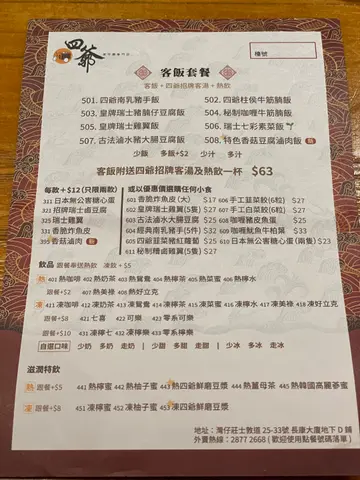 四爺
檯號
客飯套餐
客飯 + 四爺招牌客湯 + 熱飲
501. 四爺南乳豬手飯 502. 四爺柱侯牛筋腩飯
503. 皇牌瑞士豬腩仔豆腐飯 504. 秘制咖喱牛筋腩飯
505. 皇牌瑞士雞翼飯 506. 瑞士七彩素菜飯
507. 古法滷水豬大腸豆腐飯 508. 特色香菇豆腐滷肉飯
少飯 多飯+$2 少汁 多汁
客飯附送四爺招牌客湯及熱飲一杯 $63
每款 + $12 (只限兩款)
311 日本無公害糖心蛋
321 招牌瑞士鹵豆腐
325 瑞士雞翼
331 香脆炸魚皮
395 香菇滷肉
或以優惠價選購任何小食
601 香脆炸魚皮(大) $17 606 手工韮菜餃(6粒) $27
602 皇牌瑞士雞翼(5隻) $27 607 手工白菜餃(6粒) $27
603 古法滷水大腸豆腐 $25 608 咖喱豬皮魚蛋 $25
604 經典南乳豬手(5件) $32 609 咖喱魷魚牛柏葉 $33
605 四爺韮菜豬紅蘿蔔 $25 610 日本無公害糖心蛋 (兩隻) $23
611 秘制糟鹵雞翼(5隻) $27
飲品 跟餐奉送熱飲 凍飲 + $5
熱 401 熱咖啡 402 熱奶茶 403 熱鴛鴦 404 熱檸茶 405 熱菜蜜 406 熱檸水
跟餐+$2 407 熱美祿 408 熱好立克
凍 411 凍咖啡 412 凍奶茶 413 凍鴛鴦 414 凍檸茶 415 凍菜蜜 416 凍檸水 417 凍美祿 418 凍好立克
跟餐+$8 421 七喜 422 可樂 423 零系可樂
跟餐+$10 431 凍檸七 432 凍檸樂 433 零系檸樂
自選口味 少奶 多奶 走奶 | 少甜 多甜 走甜 | 少冰 多冰 走冰
滋潤特飲
熱 跟餐+$5 441 熱檸蜜 442 熱柚子蜜 443 熱四爺鮮磨豆漿 444 熱薑母茶 445 熱韓國高麗蔘蜜
凍 跟餐+$8 451 凍檸蜜 452 凍柚子蜜 453 凍四爺鮮磨豆漿
地址：灣仔莊士敦道 25-33號 長康大廈地下 D 鋪
外賣熱線：2877 2668 ( 歡迎使用點餐號碼落單 )